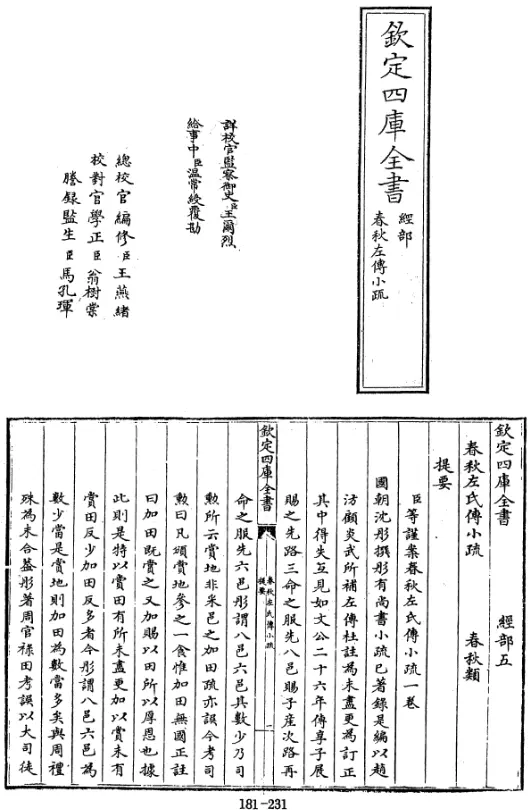 欽定四庫全書
經部
春秋左傳小疏
詳校官監察御史臣王爾烈
給事中臣溫常綬覆勘
總校官編修臣王燕緒
校對官學正臣翁樹棠
謄錄監生臣馬孔琿
欽定四庫全書 經部五
春秋左氏傳小疏 春秋類
提要
臣等謹案春秋左氏傳小疏一卷
國朝沈彤撰彤有尚書小疏已著錄是編以趙
汸顧炎武所補左傳杜註為未盡更為訂正
其中得失互見如文公二十六年傳享子展
賜之先路三命之服先八邑賜子産次路再
欽定四庫全書
春秋左氏傳小疏
提要
一
命之服先六邑彤謂八邑六邑其數少乃司
勲所云賞地非采邑之加田疏亦誤今考司
勲曰凡頒賞地參之一食惟加田無國正註
曰加田既賞之又加賜以田所以厚恩也據
此則是特以賞田有所未盡更加以賞未有
賞田反少加田反多者今彤謂八邑六邑為
數少當是賞地則加田為數當多矣與周禮
殊為未合蓋彤著周官禄田考誤以大司徒
181-231